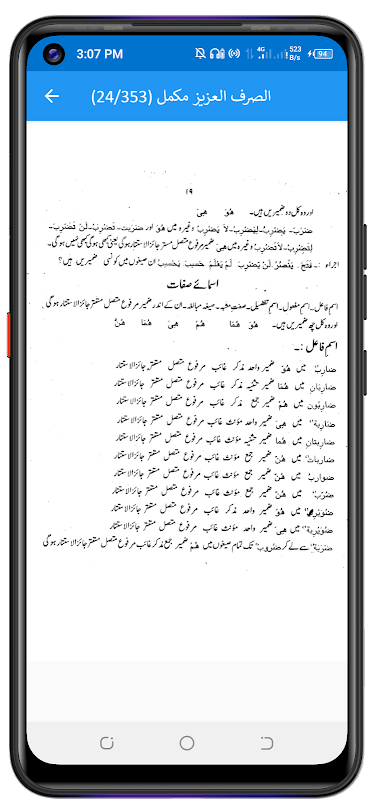 3:07 PM 4G 523 B/s 94
الصرف العزيز مکمل (24/353)
١٩
اور وہ کل دو ضمیریں ہیں۔ هُوَ هِیَ
ضَرَبَ۔ يَضْرِبُ۔ لِيَضْرِبْ۔ لاَ يَضْرِبْ وغیرہ میں هُوَ اور ضَرَبَتْ۔ تَضْرِبُ۔ لَنْ تَضْرِبَ۔
لِتَضْرِبْ۔ لاَتَضْرِبْ وغیرہ میں هِیَ ضمیر مرفوع متصل مستتر جائزالاستتار ہوگی یعنی کبھی ہوگی کبھی نہیں ہوگی۔
اجراء :۔ فَتَحَ۔ يَنْصُرُ لَنْ يَضْرِبَ لَمْ يَعْلَمْ حَسِبَ يَحْسِبُ ان صیغوں میں کونسی ضمیریں ہیں؟
اسمائے صفات
اسم فاعل۔ اسم مفعول۔ اسم تفضیل۔ صفت مشبہ۔ صیغہ مبالغہ۔ ان کے اندر ضمیر مرفوع متصل مستتر جائزالاستتار ہوگی
اور وہ کل چھ ضمیریں ہیں۔ هُوَ هُمَا هُمْ هِیَ هُمَا هُنَّ
اسم فاعل :۔
ضَارِبٌ میں هُوَ ضمیر واحد مذکر غائب مرفوع متصل مستتر جائزالاستتار
ضَارِبَانِ میں هُمَا ضمیر تثنیہ مذکر غائب مرفوع متصل مستتر جائزالاستتار
ضَارِبُوْنَ میں هُمْ ضمیر جمع مذکر غائب مرفوع متصل مستتر جائزالاستتار
ضَارِبَةٌ میں هِیَ ضمیر واحد مؤنث غائب مرفوع متصل مستتر جائزالاستتار
ضَارِبَتَانِ میں هُمَا ضمیر تثنیہ مؤنث غائب مرفوع متصل مستتر جائزالاستتار
ضَارِبَاتٌ میں هُنَّ ضمیر جمع مؤنث غائب مرفوع متصل مستتر جائزالاستتار
ضَوَارِبُ میں هُنَّ ضمیر جمع مؤنث غائب مرفوع متصل مستتر جائزالاستتار
ضُرَّبٌ میں هُنَّ ضمیر جمع مؤنث غائب مرفوع متصل مستتر جائزالاستتار
ضُوَيْرِبٌ میں هُوَ ضمیر واحد مذکر غائب مرفوع متصل مستتر جائزالاستتار
ضُوَيْرِبَةٌ میں هِیَ ضمیر واحد مؤنث غائب مرفوع متصل مستتر جائزالاستتار
ضَرَبَةٌ سے لے کر ضُرُوبٌ تک تمام صیغوں میں هُمْ ضمیر جمع مذکر غائب مرفوع متصل مستتر جائزالاستتار ہوگی